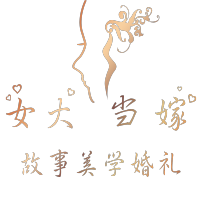 女大当嫁
故事美学婚礼